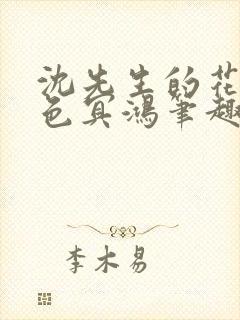 沈先生的花
色宾鸿笔趣
李木易